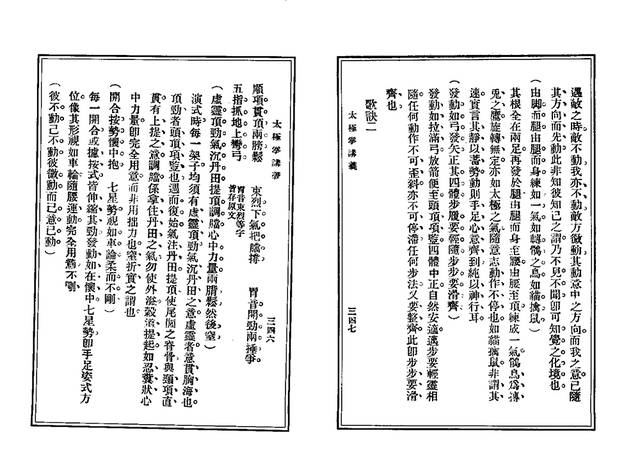 太極拳講義
三四六
順項貫頂兩膀鬆 束烈下氣把襠撐 胃音開勁兩捶爭
五指抓地上彎弓 胃音束烈等字
皆存原文
(虛靈頂勁氣沉丹田提頂調襠心中力量兩膀鬆然後窒)
演式時每一架子均須有虛靈頂勁氣沉丹田之意虛靈者意貫胸海也
頂勁者頭頂項豎也週而復始氣注丹田提頂使尾閭之脊骨與頸項直
貫有上提之意調襠係拿住丹田之氣勿使外溢穀道提起如忍糞狀心
中力量卽完全用意而非用拙力也窒折實之謂也
(開合按勢懷中抱 七星勢視如車輪柔而不剛)
每一開合或攎按式皆伸縮其勁發動如在懷中七星勢卽手足姿式方
位像其形視如車輪隨腰運動完全用鬆不剛
(彼不動己不動彼微動而己意已動)
太極拳講義
三四七
遇敵之時敵不動我亦不動敵方微動其動意中之方向而我之意已隨
其方向而先動此非知彼知己之謂乃不見不聞卽可知覺之化境也
(由脚而腿由腿而身練如一氣如轉鶻之鳥如貓擒鼠)
其根全在兩足再發於腿由腿而身至腰由腰至頂練成一氣鶻鳥爲搏
兔之鷹旋轉無定亦如太極之氣隨意志動作不停也如貓擒鼠非謂其
速實言其靜以蓄勢動則手足心意齊到純以神行耳
(發動如弓發矢正其四體步履要輕隨步步要滑齊)
發動如拉滿弓放箭便至頭頂項豎四體中正自然安逸邁步要輕靈相
隨任何動作不可歪斜亦不可停滯任何步法又要整齊此卽步步要滑
齊也
歌訣二